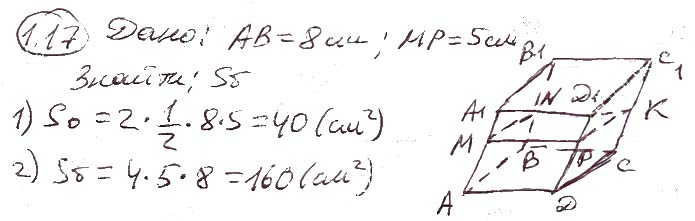 1.17 Дано: AB = 8 см; MP = 5 см
Знайти; Sб
1) So = 2 · 1/2 · 8 · 5 = 40 (см²)
2) Sб = 4 · 5 · 8 = 160 (см²)
B1 C1
A1 N D1 K
M B P C
A D